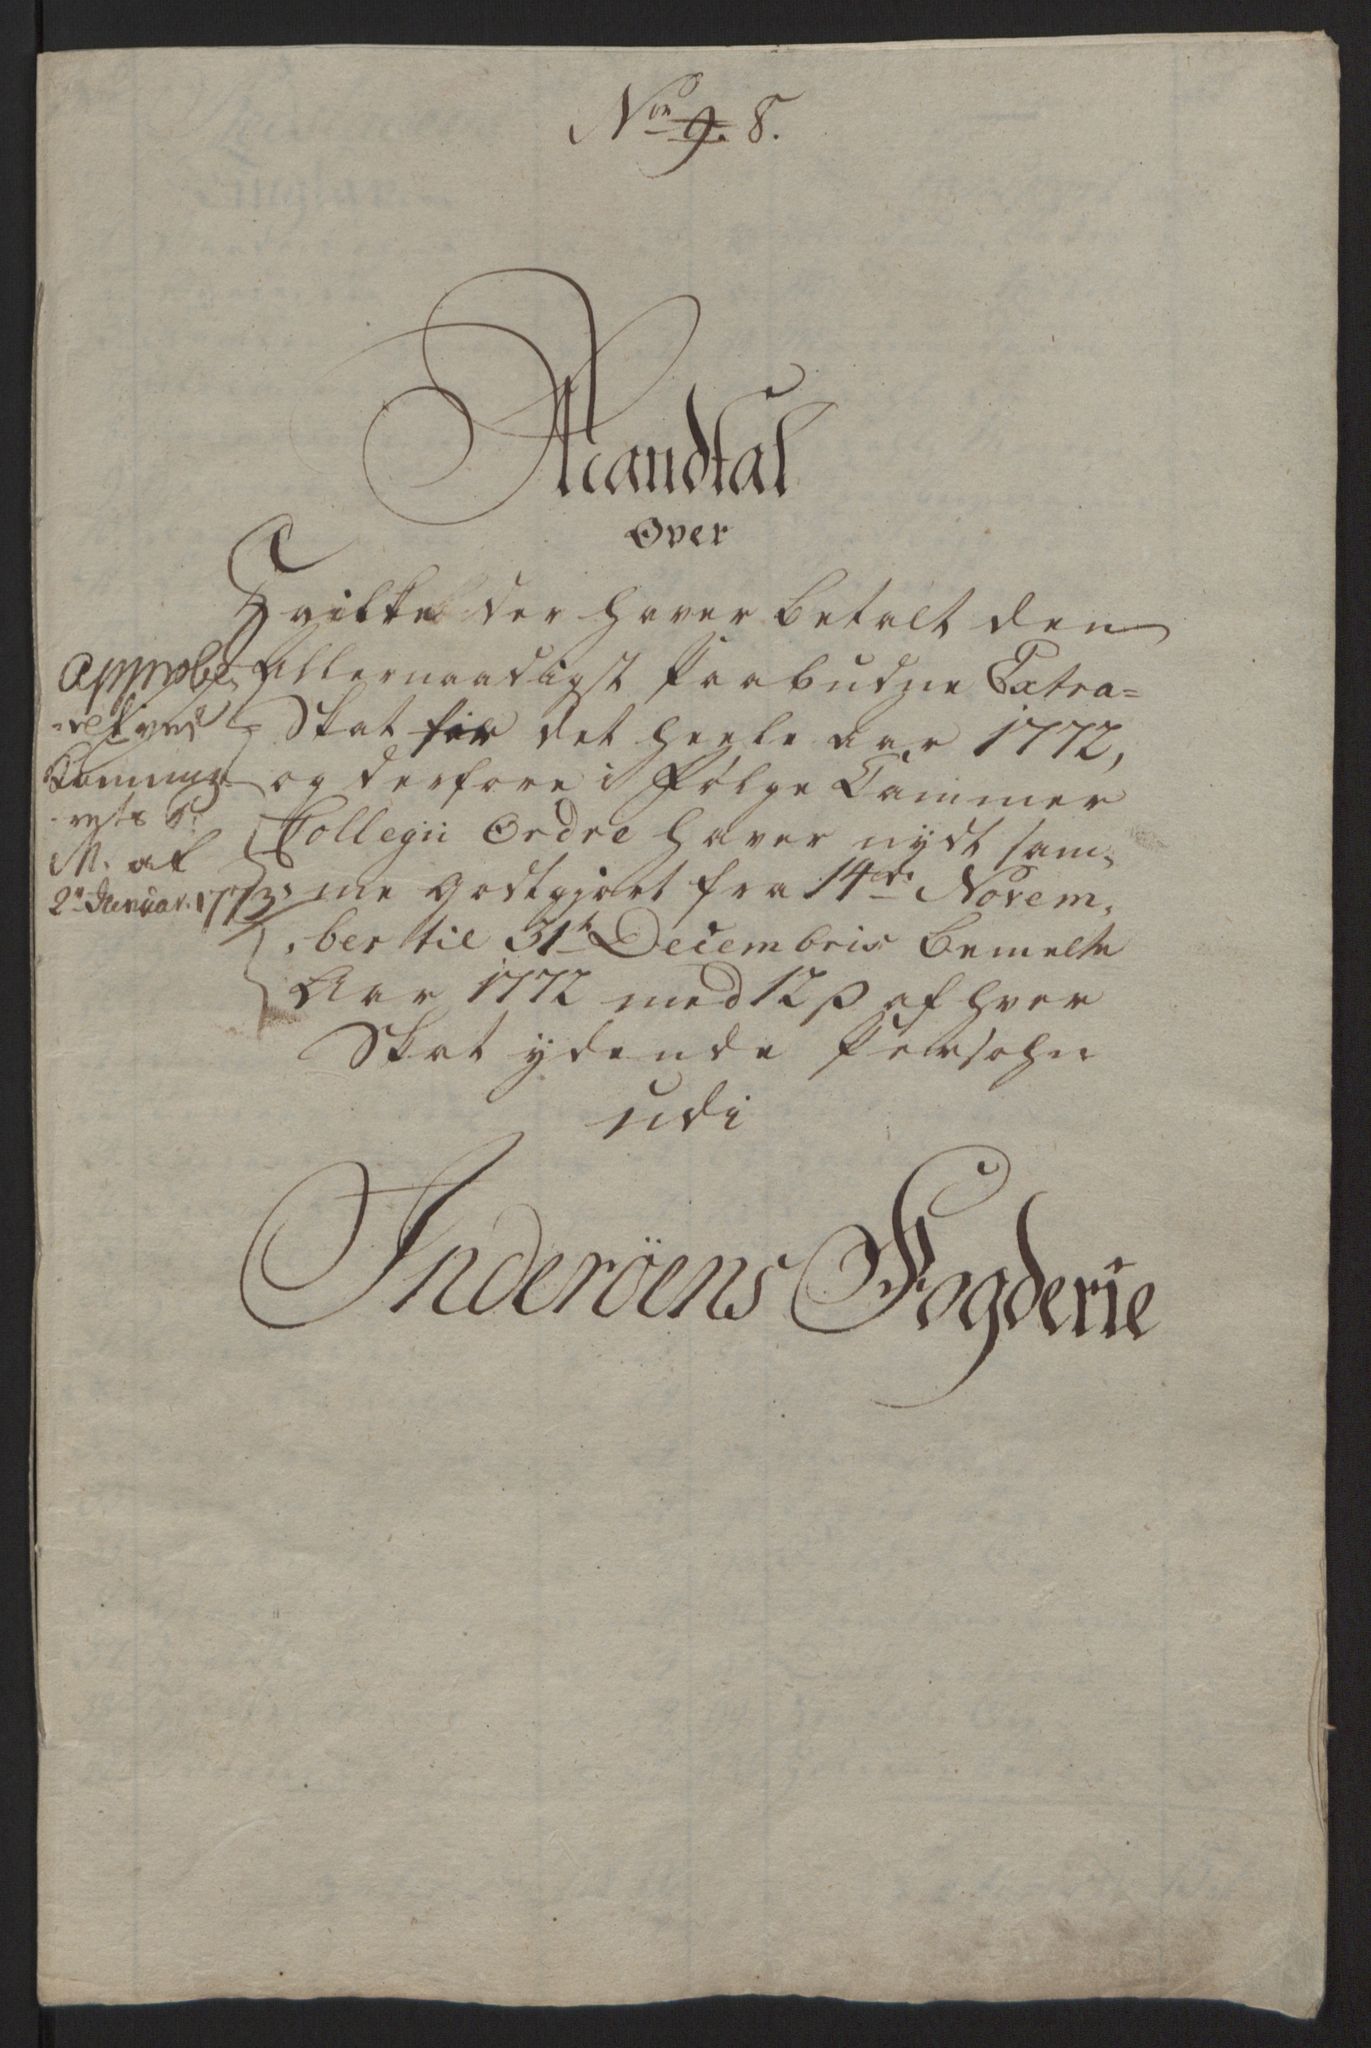 No 9. 8.
Mandtal
Over
Hvilke der haver betalt den
Allernaadigst paabudne Extra=
Skat for det heele aar 1772,
og derfore i Følge Cammer
Collegii Ordre haver nydt sam-
me godtgjort fra 14de Novem-
ber til 31te Decembris bemelte
Aar 1772 med 12 β af hver
Skat ydende Persohn
udi
Inderöens Fogderie
Approbe-
ret ved
Kamme-
M. af
2n Januar. 1773.